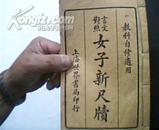 教科自修適用
言文
對照
女子新尺牘
上海世界書局印行